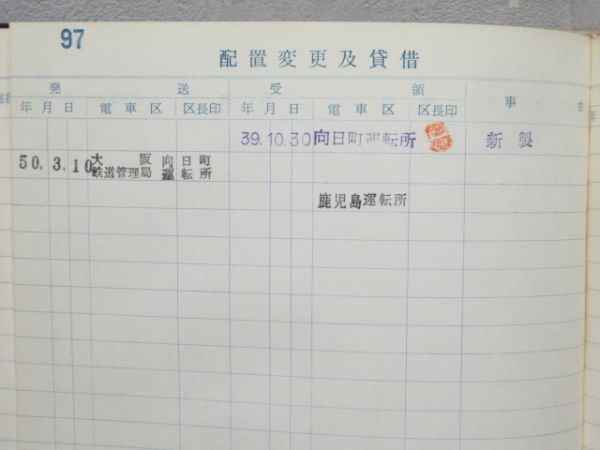 97
配置変更及貸借
発送 受領 事由
年月日 電車区 区長印 年月日 電車区 区長印
39.10.30 向日町運転所 新製
50.3.10 大阪鉄道管理局 向日町運転所
鹿児島運転所